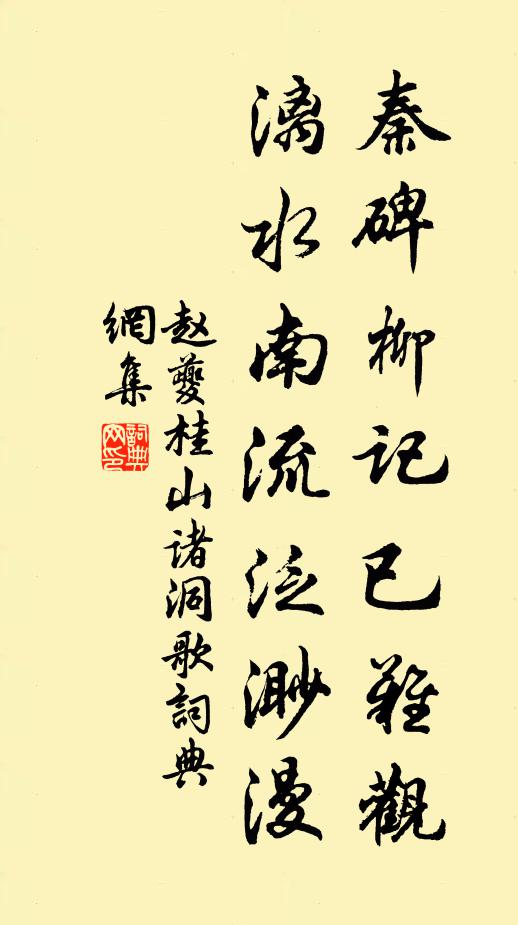 秦碑柳记已難觀
漓水南流泛渺漫
赵夔桂山诸洞歌詞典
網集
詞典
网印